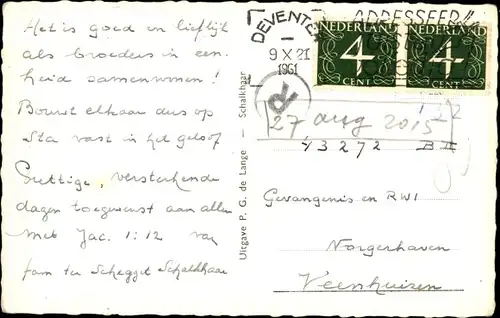 Het is goed en lieflijk
als broeders in een-
heid samenwonen!
Bouwt elkaar dus op
Sta vast in het geloof
Prettige, versterkende
dagen toegewenst aan allen
met Jac. 1:12 van
fam ter Schegget Schalkhaar
Uitgave P. G. de Lange - Schalkhaar
DEVENTE
9 X 21
1961
ADRESSEER
NEDERLAND
4
CENT
NEDERLAND
4
CENT
R
27 aug 2015
13272 B III
Gevangenis en RWI
Norgerhaven
Veenhuizen